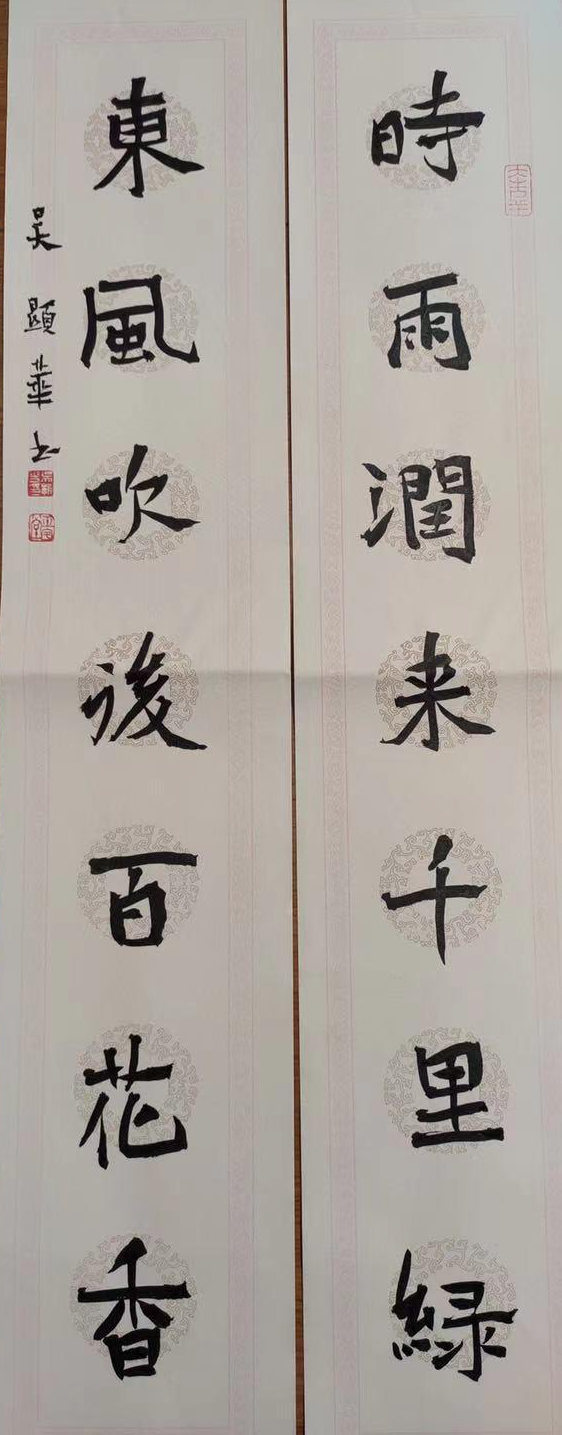 時雨潤来千里緑
東風吹後百花香
吴顯華书